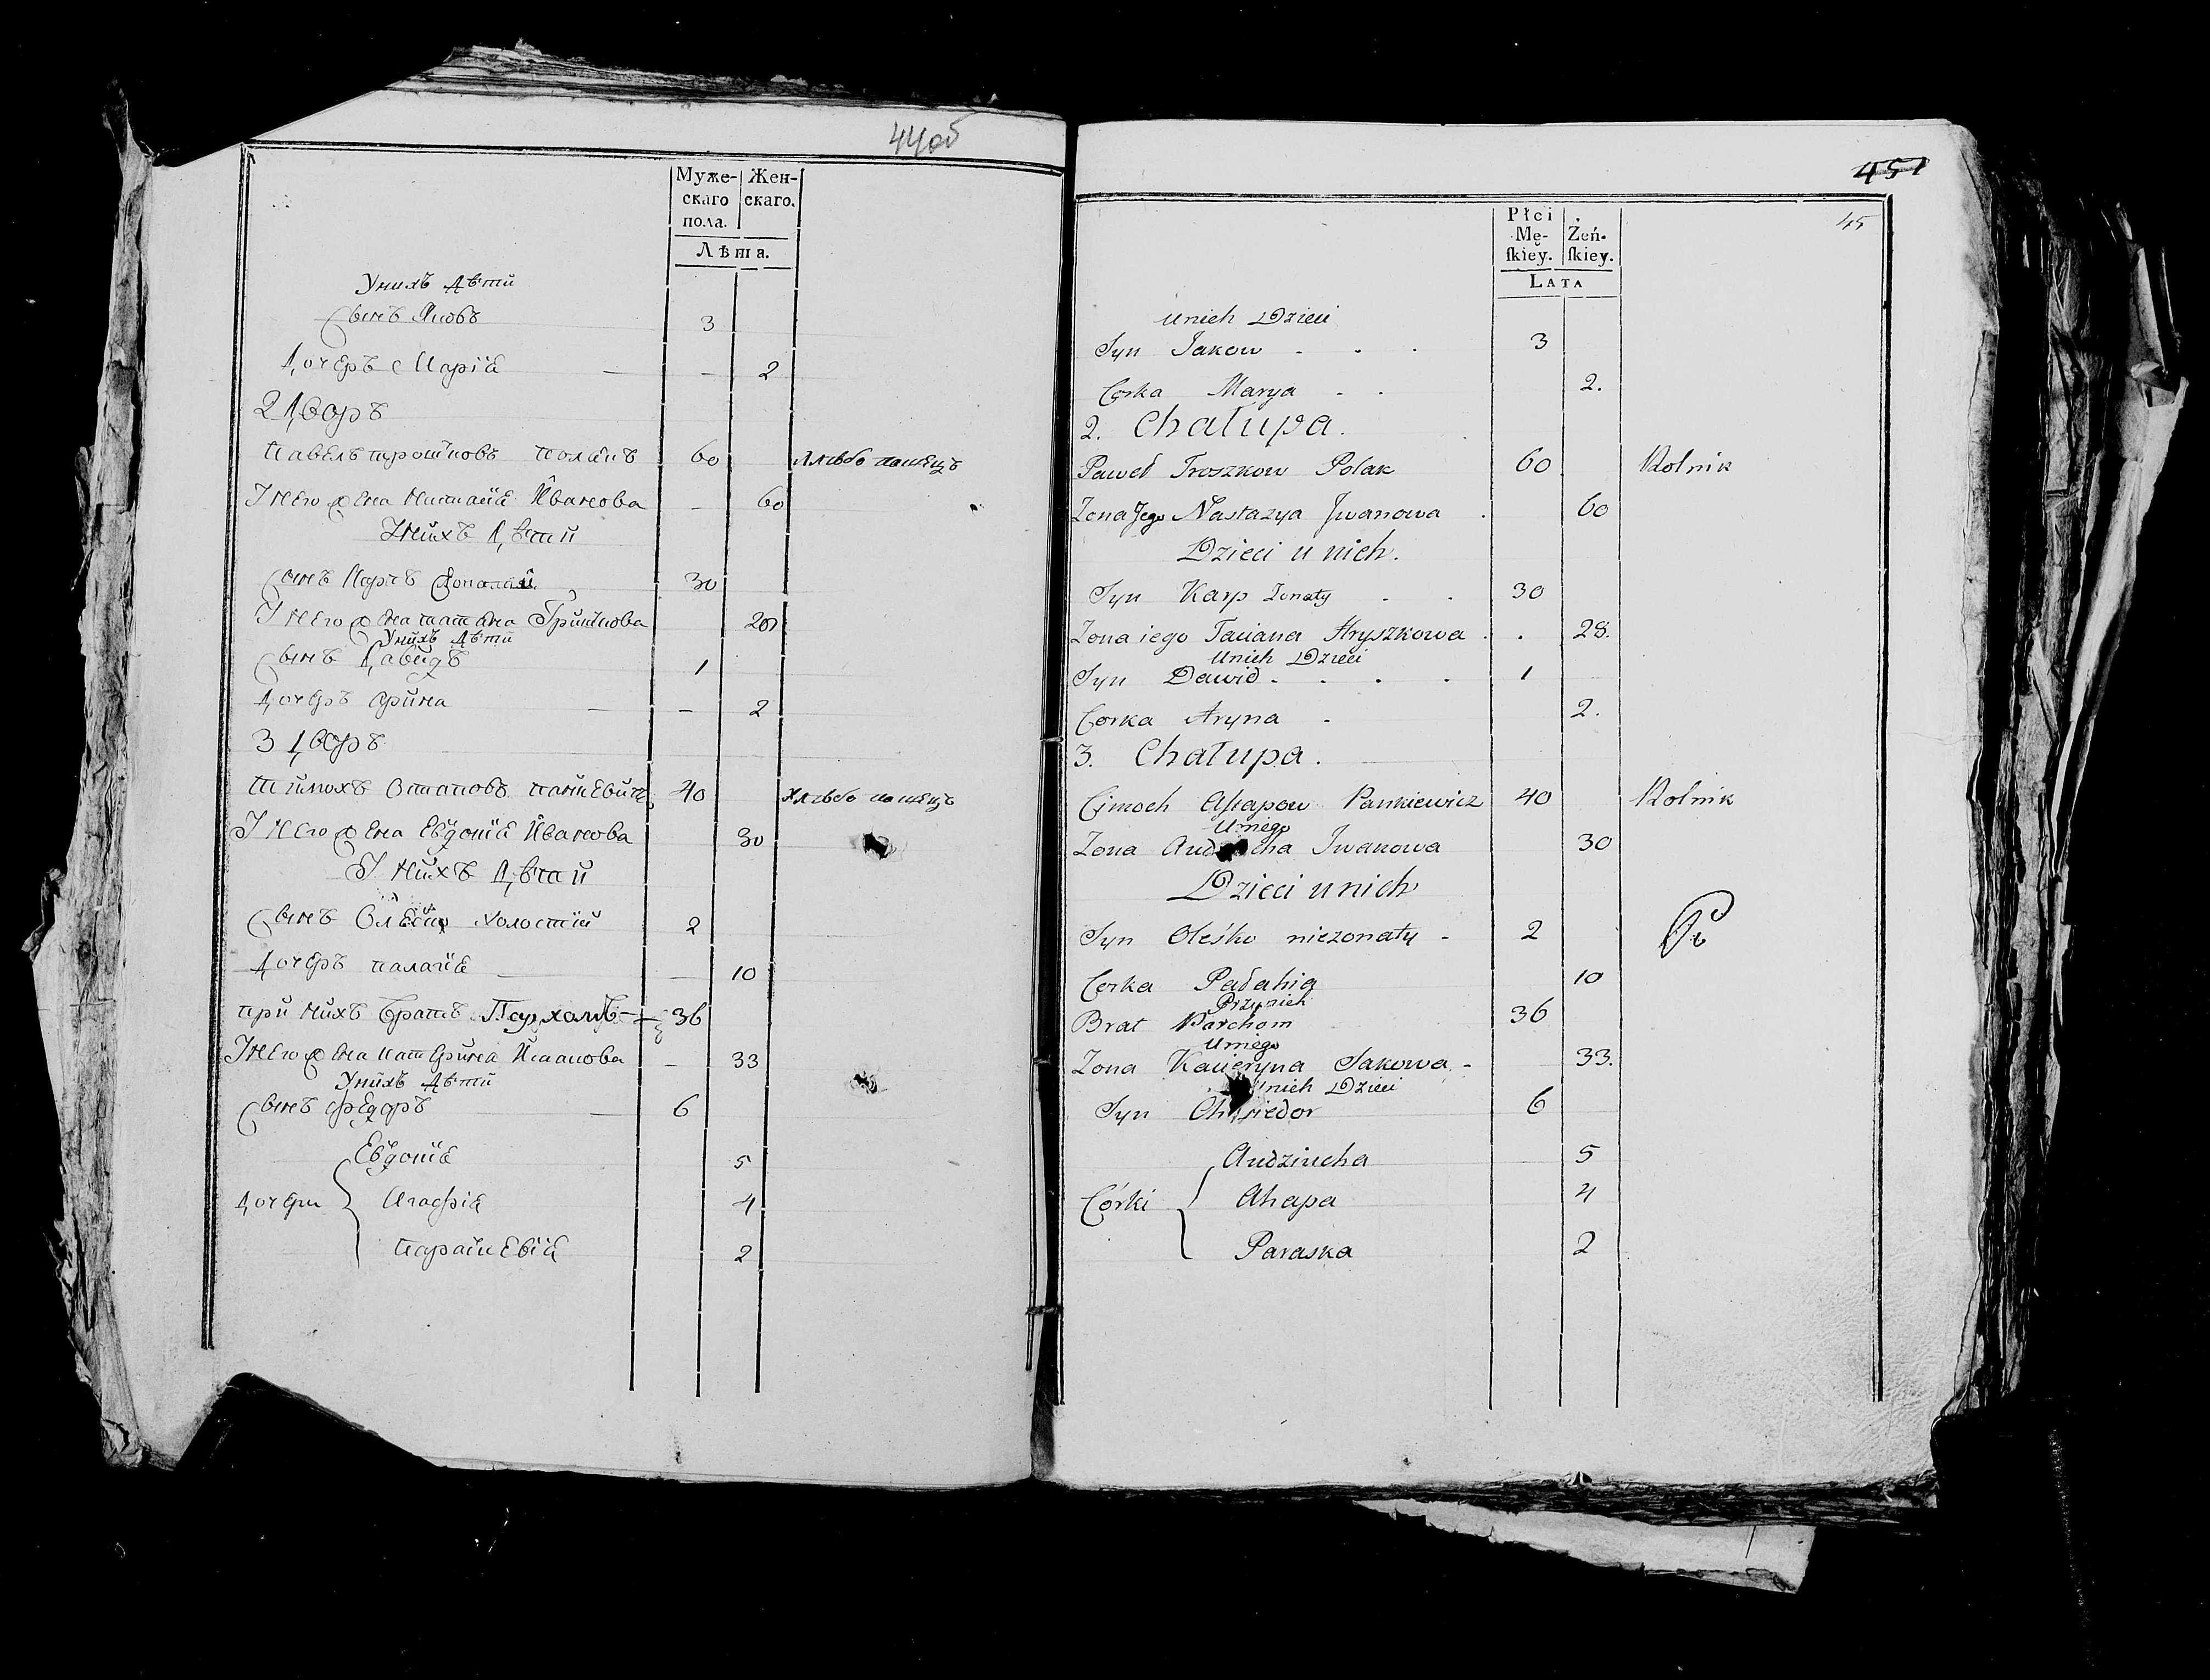 44об
Муже-
скаго
пола.
Жен-
скаго.
Лѣта.
Унихъ дѣти
Сынъ Яковъ 3
Дочеръ Марія 2
2 Дворъ
Павелъ трошковъ полакъ 60 хлѣбо пашецъ
Унего жена Настасія Ивановa 60
Унихъ дѣтии
Сынъ Карпъ 30
Унего жена татяна Гришкова 28
Унихъ дѣти
Сынъ Давидъ 1
Дочеръ Орина 2
3 дворъ
Тимохъ Остаповъ панкевичъ 40 хлѣбо пашецъ
Унего жена Евдокія Иванова 30
Унихъ дѣтии
Сынъ холостіи 2
Дочеръ палагія 10
при нихъ братъ Пархомъ 36
Унего жена катерина 33
Унихъ дѣти
Сынъ федоръ 6
Евдокія 5
Дочери Агафія 4
Параскевія 2
451
45
Płci
Mę-
skiey.
Żeń-
skiey.
LATA
unich Dzieci
Syn Jakow 3
Corka Marya 2.
2. Chałupa.
Paweł Troszkow Polak 60 Rolnik
Zona Jego Nastazya Jwanowa 60
Dzieci u nich.
Syn Karp Zonaty 30
Zona iego Taciana Hryszkowa 28.
Unich Dzieci
Syn Dawid 1
Corka Aryna 2.
3. Chałupa.
Cimoch Astapow Pankiewicz 40 Rolnik
Uniego
Zona Jwanowa 30
Dzieci u nich
Syn Oleśko niezonaty 2
Corka Pałahia 10
Przynich
Brat Parchom 36
Uniego
Zona Kacieryna Jakowa 33.
Unich Dzieci
Syn 6
Audziucha 5
Córki Ahapa 4
Paraska 2